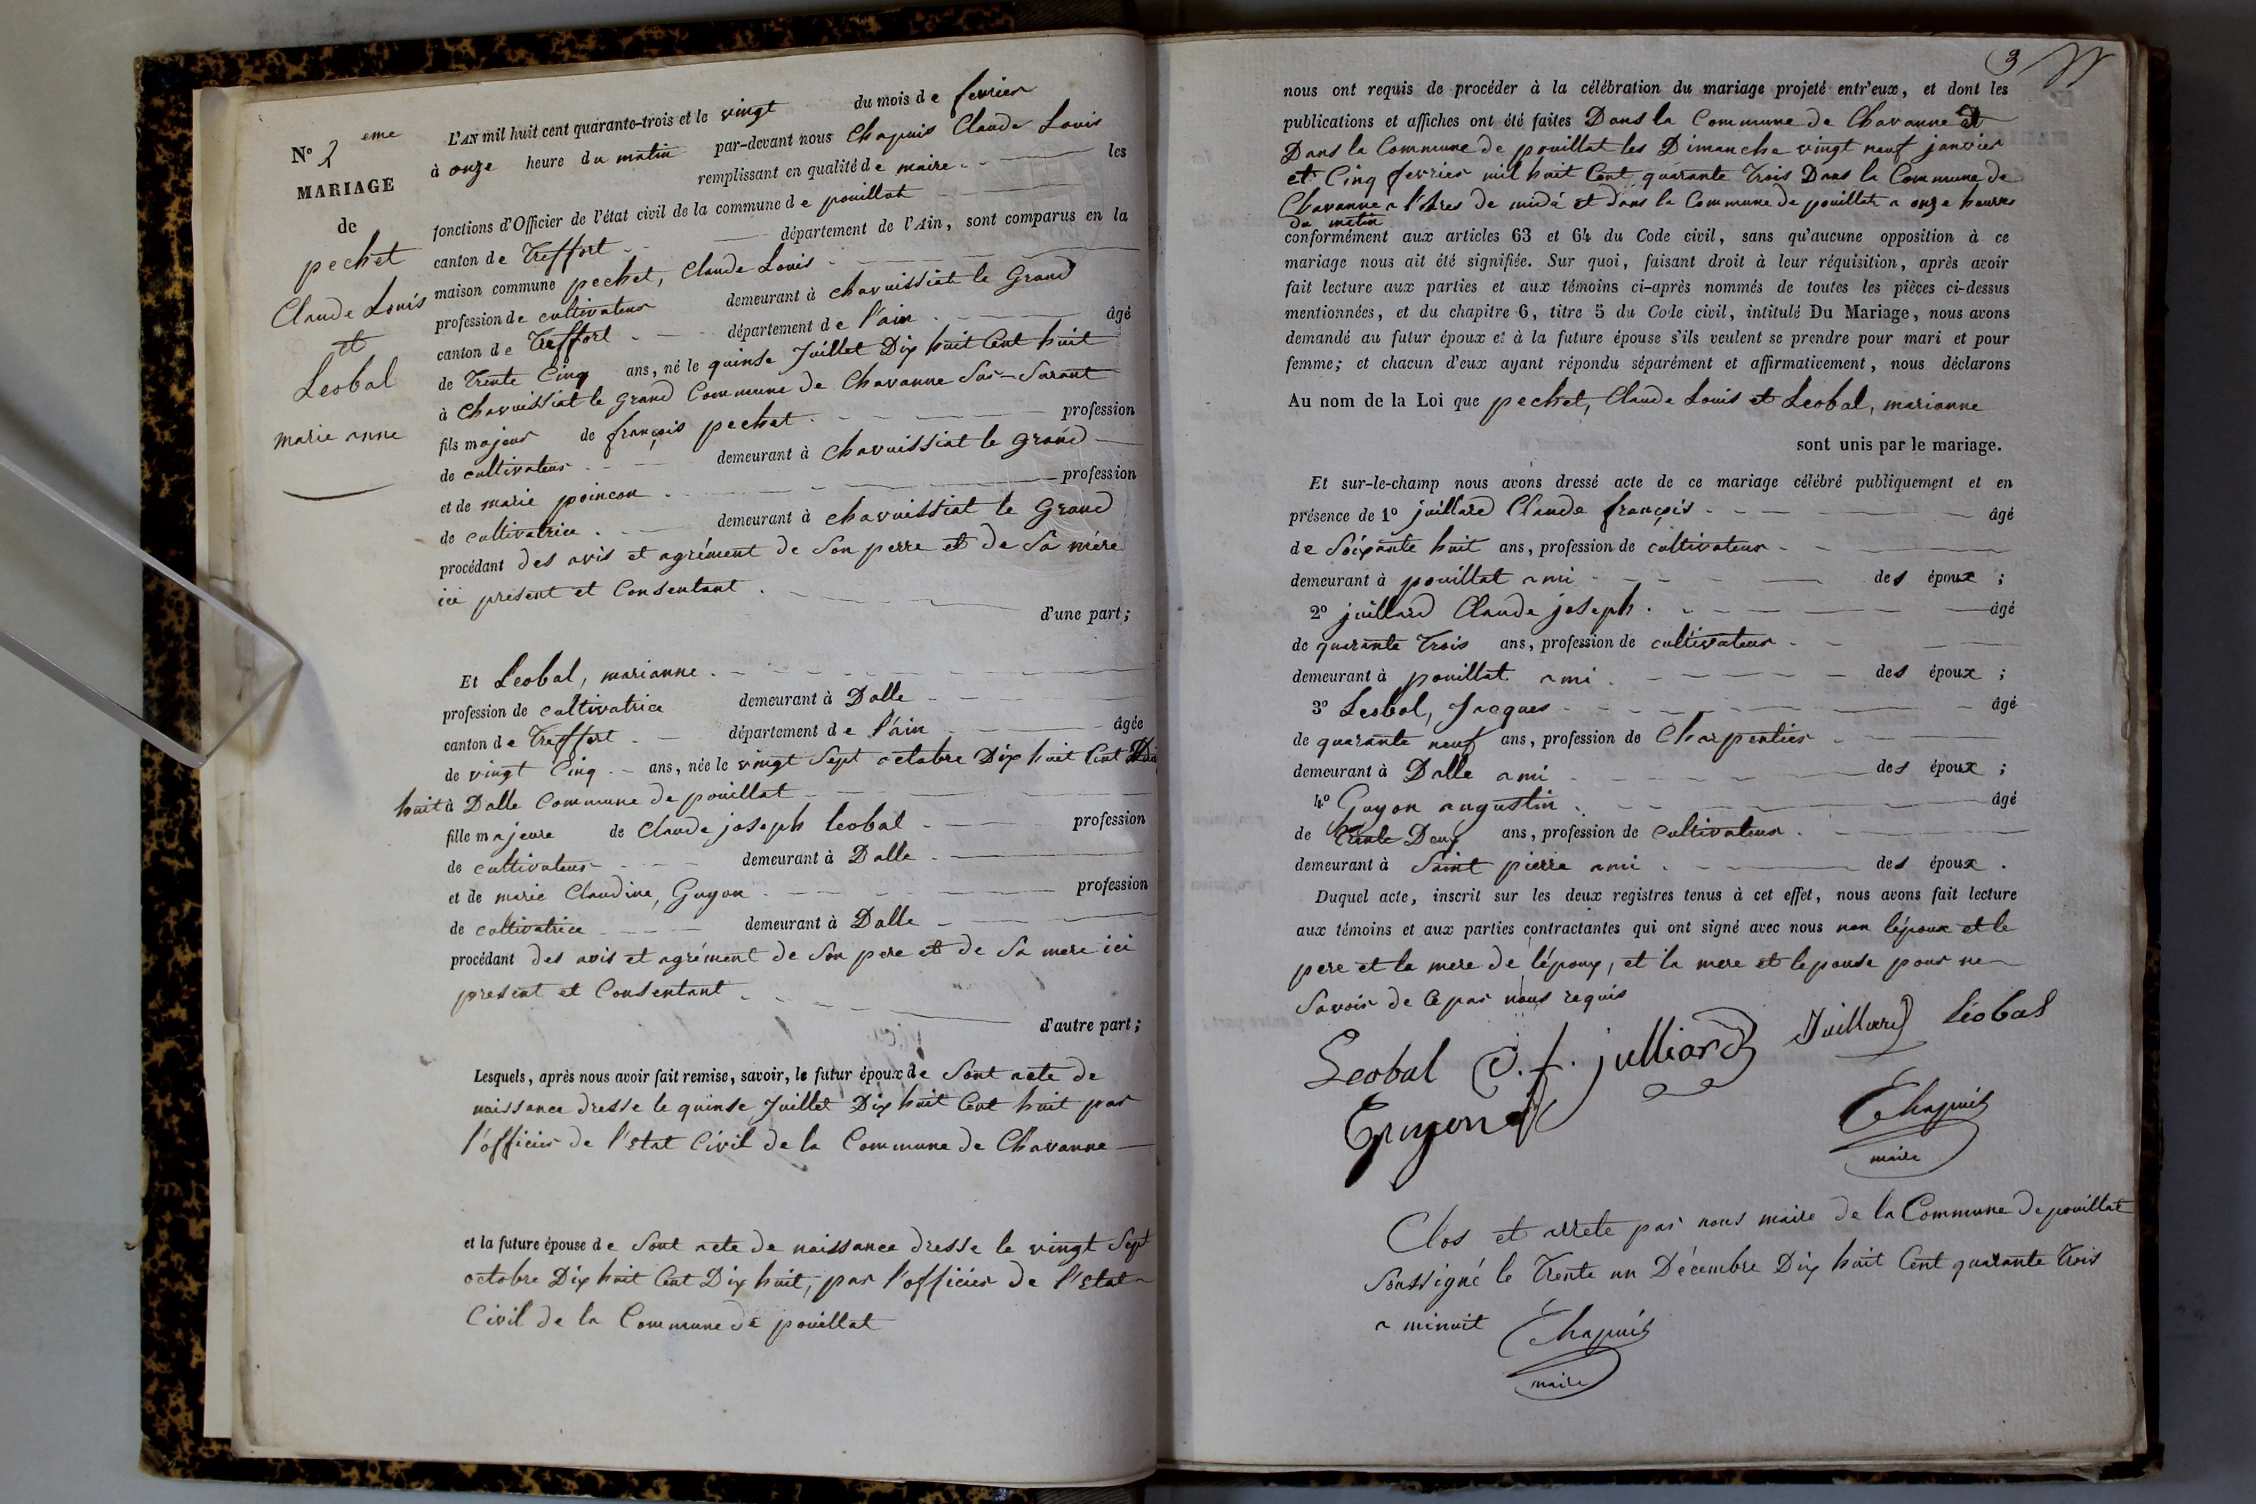 N° 2 eme
MARIAGE
de
pechet
Claude Louis
et
Leobal
marie anne
L'AN mil huit cent quarante-trois et le vingt du mois de fevrier
à onze heure du matin par-devant nous Chapuis Claude Louis
remplissant en qualité de maire les
fonctions d'Officier de l'état civil de la commune de pouillat
canton de Treffort département de l'Ain, sont comparus en la
maison commune pechet, Claude Louis
profession de cultivateur demeurant à chavuissiat le Grand
canton de Treffort département de l'ain âgé
de Trente Cinq ans, né le quinse Juillet Dix huit Cent huit
à Chavuissiat le grand Commune de Chavanne Sur-Surant
fils majeur de françois pechet profession
de cultivateur demeurant à chavuissiat le grand
et de marie poincon profession
de cultivatrice demeurant à chavuissiat le Grand
procédant des avis et agrément de Son perre et de Sa mére
ici present et Consentant
d'une part;
Et Leobal, marianne
profession de cultivatrice demeurant à Dalle
canton de Treffort département de l'ain âgée
de vingt Cinq ans, née le vingt Sept octobre Dix huit Cent Dix
huit à Dalle Commune de pouillat
fille majeure de Claude joseph leobal profession
de cultivateur demeurant à Dalle
et de marie Claudine, Guyon profession
de cultivatrice demeurant à Dalle
procédant des avis et agrément de Son pere et de Sa mere ici
present et Consentant
d'autre part;
Lesquels, après nous avoir fait remise, savoir, le futur époux de Sont acte de
naissance dresse le quinse Juillet Dix huit Cent huit par
l'officier de l'Etat Civil de la Commune de Chavanne
et la future épouse de Sont acte de naissance dresse le vingt Sept
octobre Dix huit Cent Dix huit, par l'officier de l'Etat
Civil de la Commune de pouillat
3
nous ont requis de procéder à la célébration du mariage projeté entr'eux, et dont les
publications et affiches ont été faites Dans la Commune de Chavanne et
Dans la Commune de pouillat les Dimanche vingt neuf janvier
et Cinq fevrier mil huit Cent quarante Trois Dans la Commune de
Chavanne a l'hres de midé et dans la Commune de pouillat a onze heurres
du matin
conformément aux articles 63 et 64 du Code civil, sans qu'aucune opposition à ce
mariage nous ait été signifiée. Sur quoi, faisant droit à leur réquisition, après avoir
fait lecture aux parties et aux témoins ci-après nommés de toutes les pièces ci-dessus
mentionnées, et du chapitre 6, titre 5 du Code civil, intitulé Du Mariage, nous avons
demandé au futur époux et à la future épouse s'ils veulent se prendre pour mari et pour
femme; et chacun d'eux ayant répondu séparément et affirmativement, nous déclarons
Au nom de la Loi que pechet, Claude Louis et Leobal, marianne
sont unis par le mariage.
Et sur-le-champ nous avons dressé acte de ce mariage célébré publiquement et en
présence de 1° juillard Claude françois âgé
de Soixante huit ans, profession de cultivateur
demeurant à pouillat ami des époux;
2° juillard Claude joseph âgé
de quarante Trois ans, profession de cultivateur
demeurant à pouillat ami des époux;
3° Leobal, Jacques âgé
de quarante neuf ans, profession de Charpentier
demeurant à Dalle ami des époux;
4° Guyon augustin âgé
de Trente Deux ans, profession de cultivateur
demeurant à Saint pierre ami des époux.
Duquel acte, inscrit sur les deux registres tenus à cet effet, nous avons fait lecture
aux témoins et aux parties contractantes qui ont signé avec nous non l'époux et le
pere et la mere de l'époux, et la mere et lepouse pour ne
Savoir de Ce par nous requis
Leobal C. f. julliard Juillard Léobal
Guyon Chapuis
maire
Clos et arrete par nous maire de la Commune de pouillat
Soussigné le Trente un Décembre Dix huit Cent quarante Trois
a minuit Chapuis
maire